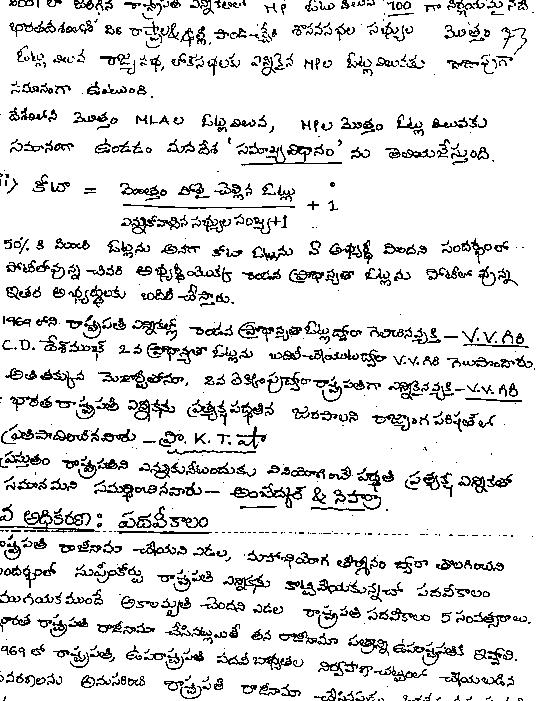 జరిగిన రాష్ట్రపతి ఎన్నికలలో MP ఓటు విలువ 700 గా నిర్ణయమైనది
భారతదేశంలో 28 రాష్ట్రాల, ఢిల్లీ, పాండిచ్చేరి శాసనసభల సభ్యుల మొత్తం
ఓట్ల విలువ రాజ్యసభ, లోక్‌సభలకు ఎన్నికైన MPల ఓట్ల విలువకు దాదాపుగా
సమానంగా ఉంటుంది.
దేశంలోని మొత్తం MLAల ఓట్ల విలువ, MPల మొత్తం ఓట్ల విలువకు
సమానంగా ఉండడం మనదేశ 'సమాఖ్య విధానం' ను తెలియజేస్తుంది.
ii) కోటా = మొత్తం పోలై చెల్లిన ఓట్లు / ఎన్నుకోవాల్సిన సభ్యుల సంఖ్య+1 + 1
50% కి మించి ఓట్లను అనగా కోటా ఓట్లను ఏ అభ్యర్థీ పొందని సందర్భంలో
పోటీలోవున్న చివరి అభ్యర్థి యొక్క రెండవ ప్రాధాన్యతా ఓట్లను పోటీలో వున్న
ఇతర అభ్యర్థులకు బదిలీ చేస్తారు.
1969 లోని రాష్ట్రపతి ఎన్నికల్లో రెండవ ప్రాధాన్యతా ఓట్లద్వారా గెలిచినవ్యక్తి – V.V.గిరి
C.D. దేశ్‌ముఖ్ 2వ ప్రాధాన్యతా ఓట్లను బదిలీ చేయుటద్వారా V.V.గిరి గెలుపొందారు.
అతి తక్కువ మెజార్టీతోనూ, 2వ లెక్కింపుద్వారా రాష్ట్రపతిగా ఎన్నికైనవ్యక్తి – V.V.గిరి
భారత రాష్ట్రపతి ఎన్నికను ప్రత్యక్షపద్ధతిన జరపాలని రాజ్యాంగ పరిషత్‌లో
ప్రతిపాదించినవారు – ప్రొ. K.T.షా
ప్రస్తుతం రాష్ట్రపతిని ఎన్నుకునేటందుకు వినియోగించే పద్ధతి ప్రత్యక్ష ఎన్నికతో
సమానమని సమర్థించినవారు – అంబేద్కర్ & నెహ్రూ
వ అధికరణ: పదవీకాలం
రాష్ట్రపతి రాజీనామా చేయని ఎడల, మహాభియోగ తీర్మానం ద్వారా తొలగించని
సందర్భంలో సుప్రీంకోర్టు రాష్ట్రపతి ఎన్నికను కొట్టివేయకున్నచో పదవీకాలం
ముగియకముందే అకాలమృతి చెందని ఎడల రాష్ట్రపతి పదవీకాలం 5 సంవత్సరాలు.
భారత రాష్ట్రపతి రాజీనామా చేసినట్లయితే తన రాజీనామా పత్రాన్ని ఉపరాష్ట్రపతికి ఇవ్వాలి.
1969 లో రాష్ట్రపతి, ఉపరాష్ట్రపతి పదవీ బాధ్యతల నిర్వహణా చట్టంలో చేయబడిన
సవరణలను అనుసరించి రాష్ట్రపతి రాజీనామా